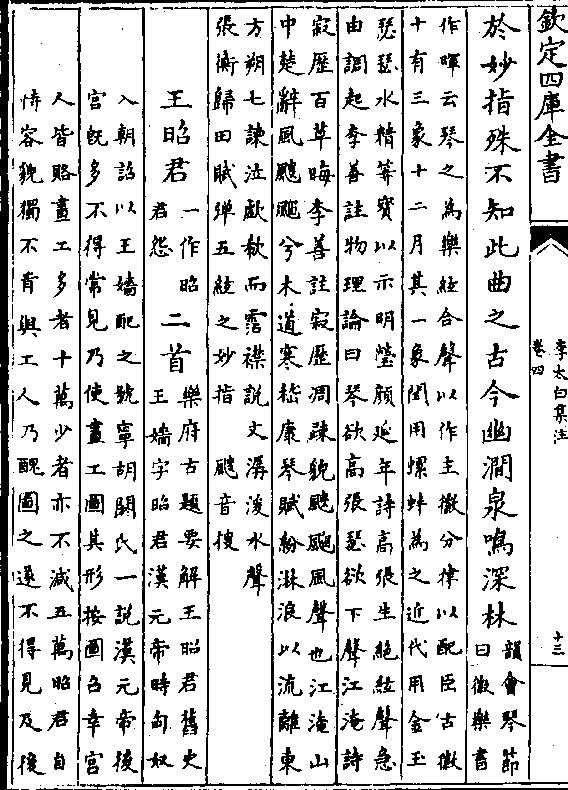 欽定四庫全書
李太白集注
卷四
十三
於妙指殊不知此曲之古今幽澗泉鳴深林
韻會琴節
曰徽樂書
作暉云琴之為樂絃合聲以作主徽分律以配臣古徽
十有三象十二月其一象閏用螺蚌為之近代用金玉
瑟瑟水精等寳以示明瑩顔延年詩高張生絶絃聲急
由調起李善註物理論曰琴欲高張瑟欲下聲江淹詩
寂歴百草晦李善註寂歴凋疎貌颼飀風聲也江淹山
中楚辭風颼飀兮木道寒嵇康琴賦紛淋浪以流離東
方朔七諫泣歔欷而霑襟説文潺湲水聲
張衡歸田賦弹五絃之妙指 颼音搜
王昭君
一作昭
君怨
二首
樂府古題要解王昭君舊史
王嬙字昭君漢元帝時匈奴
入朝詔以王嬙配之號寧胡閼氏一説漢元帝後
宮既多不得常見乃使畫工圖其形按圖召幸宮
人皆賂畫工多者十萬少者亦不減五萬昭君自
恃容貌獨不肯與工人乃醜圖之遂不得見及後